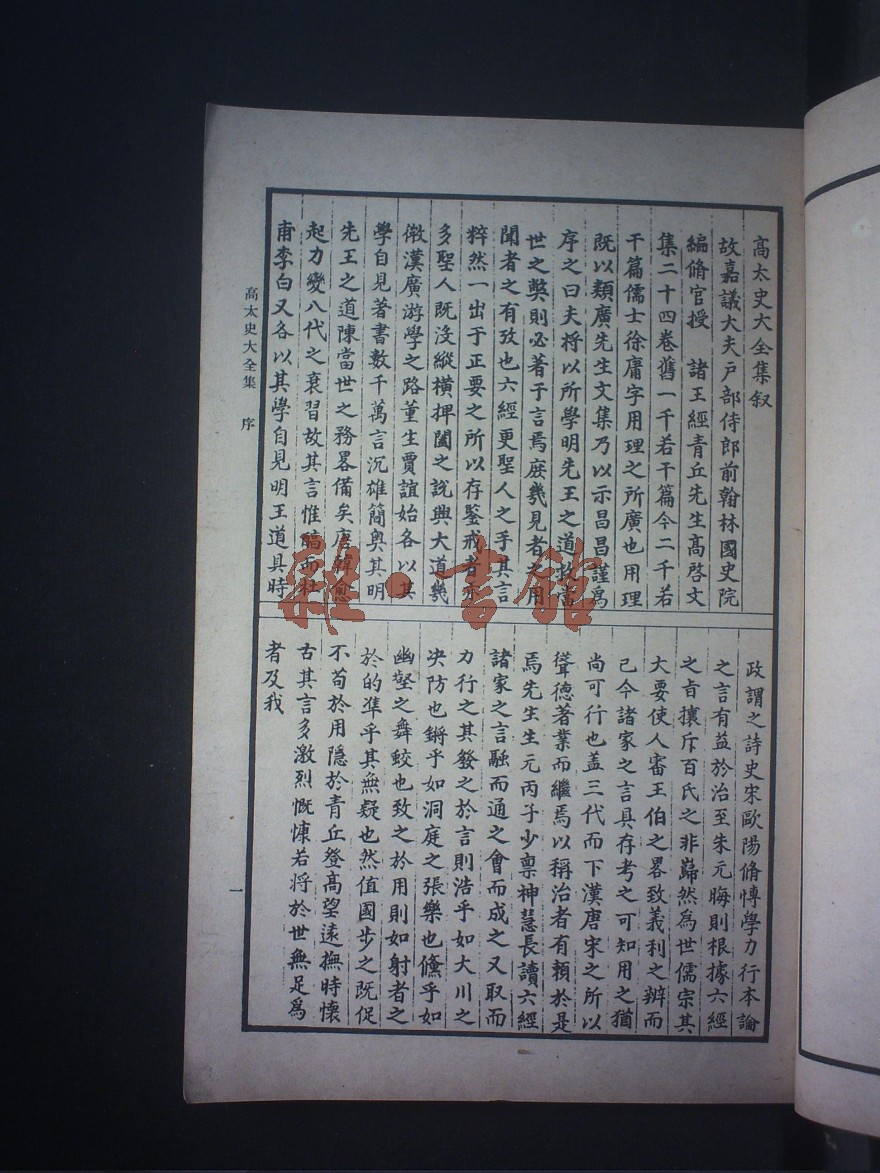 高太史大全集叙
故嘉議大夫戸部侍郎前翰林國史院
編脩官授　諸王經青丘先生髙啓文
集二十四卷舊一千若干篇今二千若
干篇儒士徐庸字用理之所廣也用理
既以類廣先生文集乃以示昌昌謹為
序之曰夫將以所學明先王之道救當
世之獘則必著于言焉庻幾見者之用
聞者之有攷也六經更聖人之手其言
粹然一出于正要之所以存鑒戒者亦
多聖人既沒縱橫捭闔之説興大道幾
微漢廣游學之路董生賈誼始各以其
學自見著書數千萬言沉雄簡奥其明
先王之道陳當世之務畧備矣唐韓愈
起力變八代之衰習故其言惟醕而杜
甫李白又各以其學自見明王道具時
政謂之詩史宋歐陽脩愽學力行本論
之言有益於治至朱元晦則根據六經
之㫖攘斥百氏之非巋然為世儒宗其
大要使人審王伯之畧致義利之辨而
已今諸家之言具存考之可知用之猶
尚可行也盖三代而下漢唐宋之所以
徳著業而繼焉以稱治者有頼於是
焉先生生元丙子少禀神慧長讀六經
諸家之言融而通之會而成之又取而
力行之其發之於言則浩乎如大川之
决防也鏘乎如洞庭之張樂也儵乎如
幽壑之舞蛟也致之於用則如射者之
於的準乎其無疑也然值國步之既促
不苟於用隠於青丘登髙望遠撫時懷
古其言多激烈慨慷若將於世無足為
者及我
高太史大全集　序
一
雜·書館